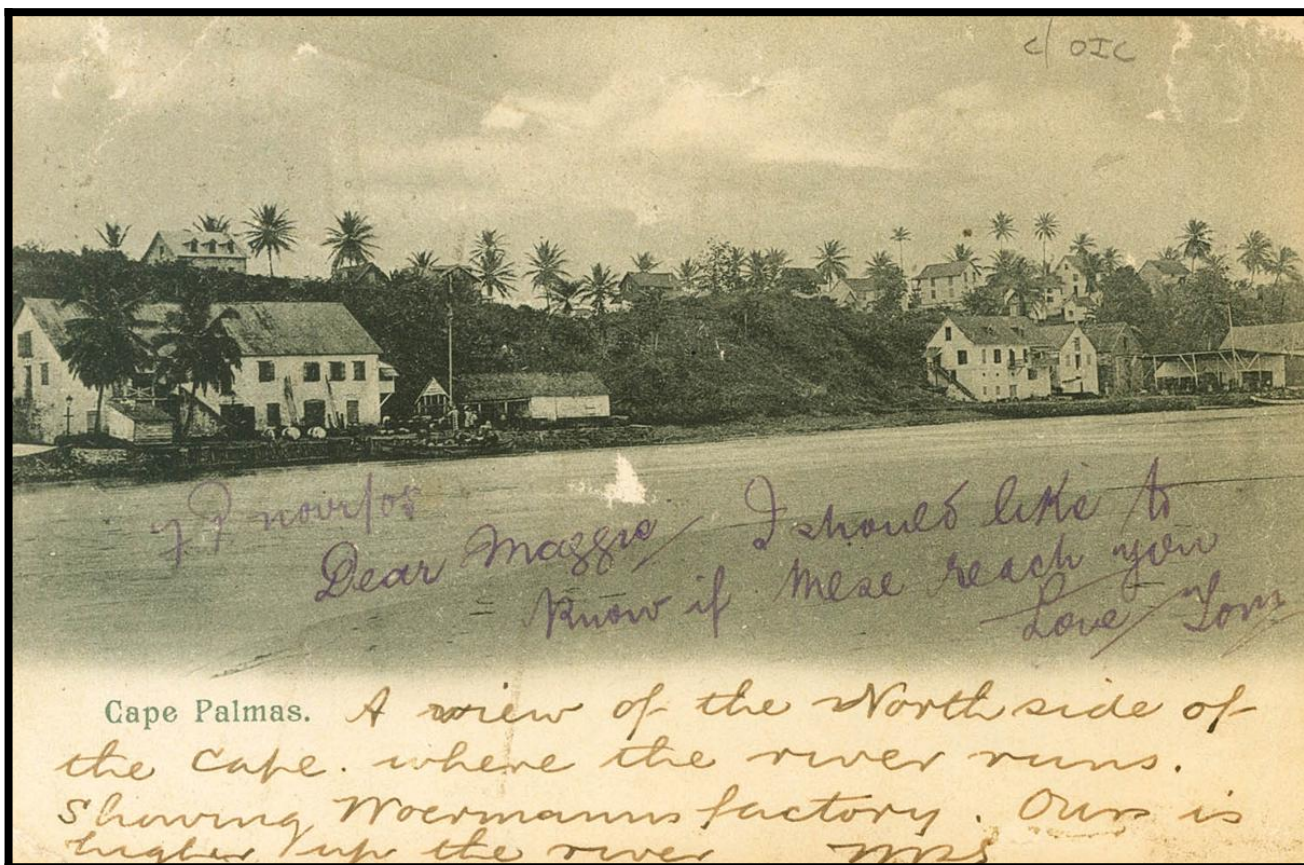 c/ OIC
Dear Maggie / I should like to
know if these reach you
Love / Tom
Cape Palmas. A view of the North side of
the Cape. where the river runs.
Showing Woermanns factory. Ours is
higher / up the river